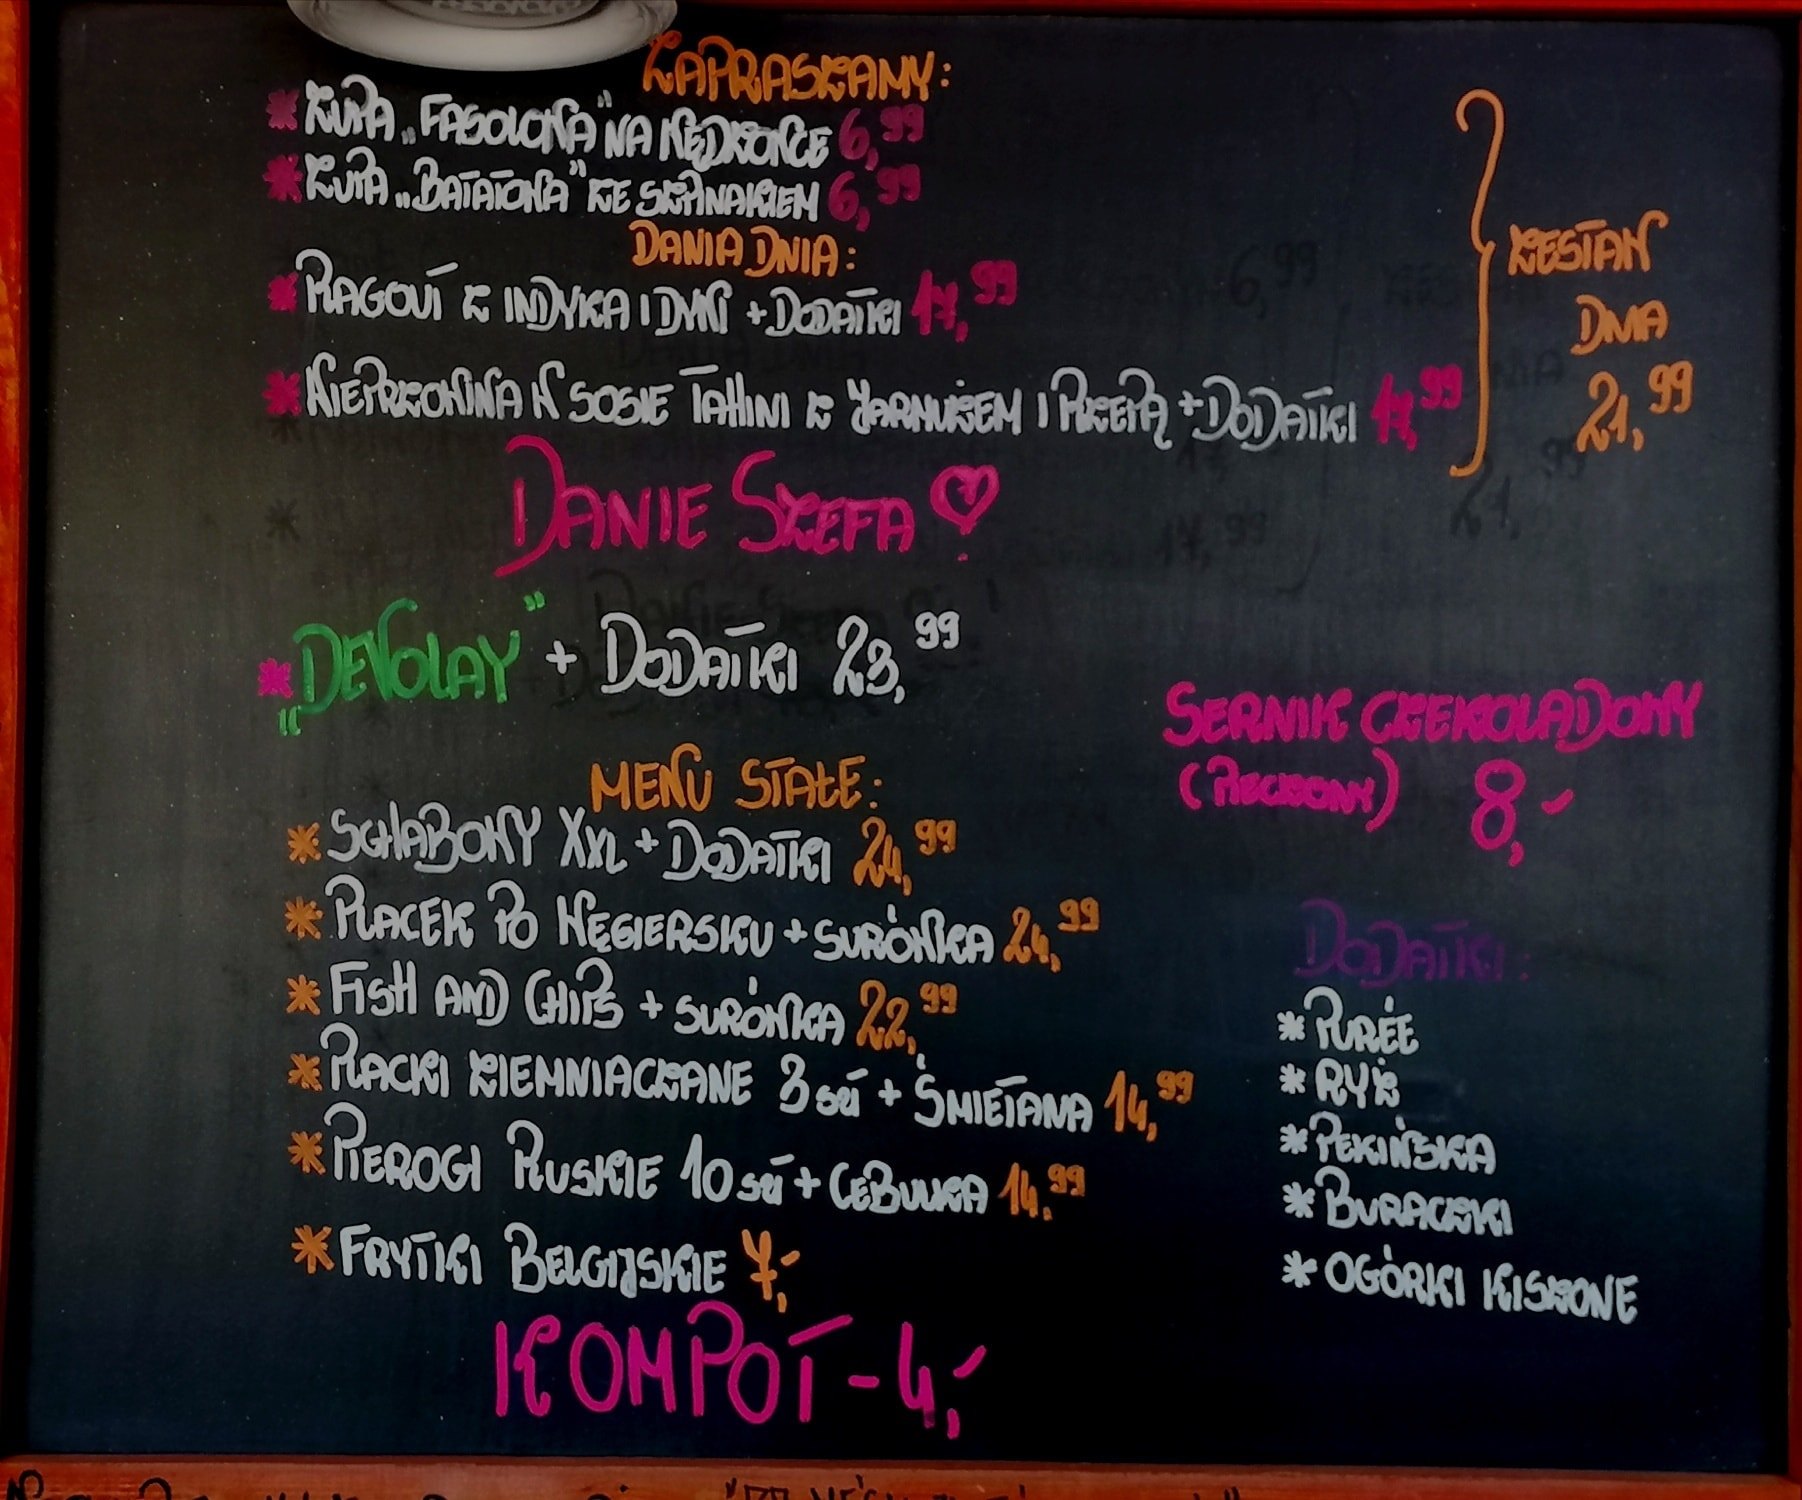 ZAPRASZAMY:
* ZUPA „FASOLOWA" NA WĘDZONCE 6,99
* ZUPA „BATATOWA" ZE SZPINAKIEM 6,99
DANIA DNIA:
* RAGOUT Z INDYKA I DYNI + DODATKI 17,99
* WIEPRZOWINA W SOSIE TAHINI Z JARMUŻEM I RZEPĄ + DODATKI 17,99
ZESTAW
DNIA
21,99
DANIE SZEFA
* „DEVOLAY" + DODATKI 23,99
SERNIK CZEKOLADOWY
(PIECZONY) 8,-
MENU STAŁE:
* SCHABOWY XXL + DODATKI 24,99
* PLACEK PO WĘGIERSKU + SURÓWKA 24,99
* FISH AND CHIPS + SURÓWKA 22,99
* PLACKI ZIEMNIACZANE 3 szt + ŚMIETANA 14,99
* PIEROGI RUSKIE 10 szt + CEBULKA 14,99
* FRYTKI BELGIJSKIE 7,-
KOMPOT - 4,-
DODATKI:
* PURÉE
* RYŻ
* PEKIŃSKA
* BURACZKI
* OGÓRKI KISZONE